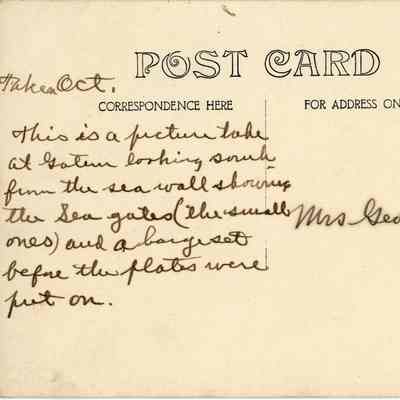 POST CARD
Taken Oct.
CORRESPONDENCE HERE
FOR ADDRESS ON
This is a picture take
at Gatun looking south
from the sea wall showing
the Sea gates (the small
ones) and a barge set
before the plates were
put on.
Mrs Geo